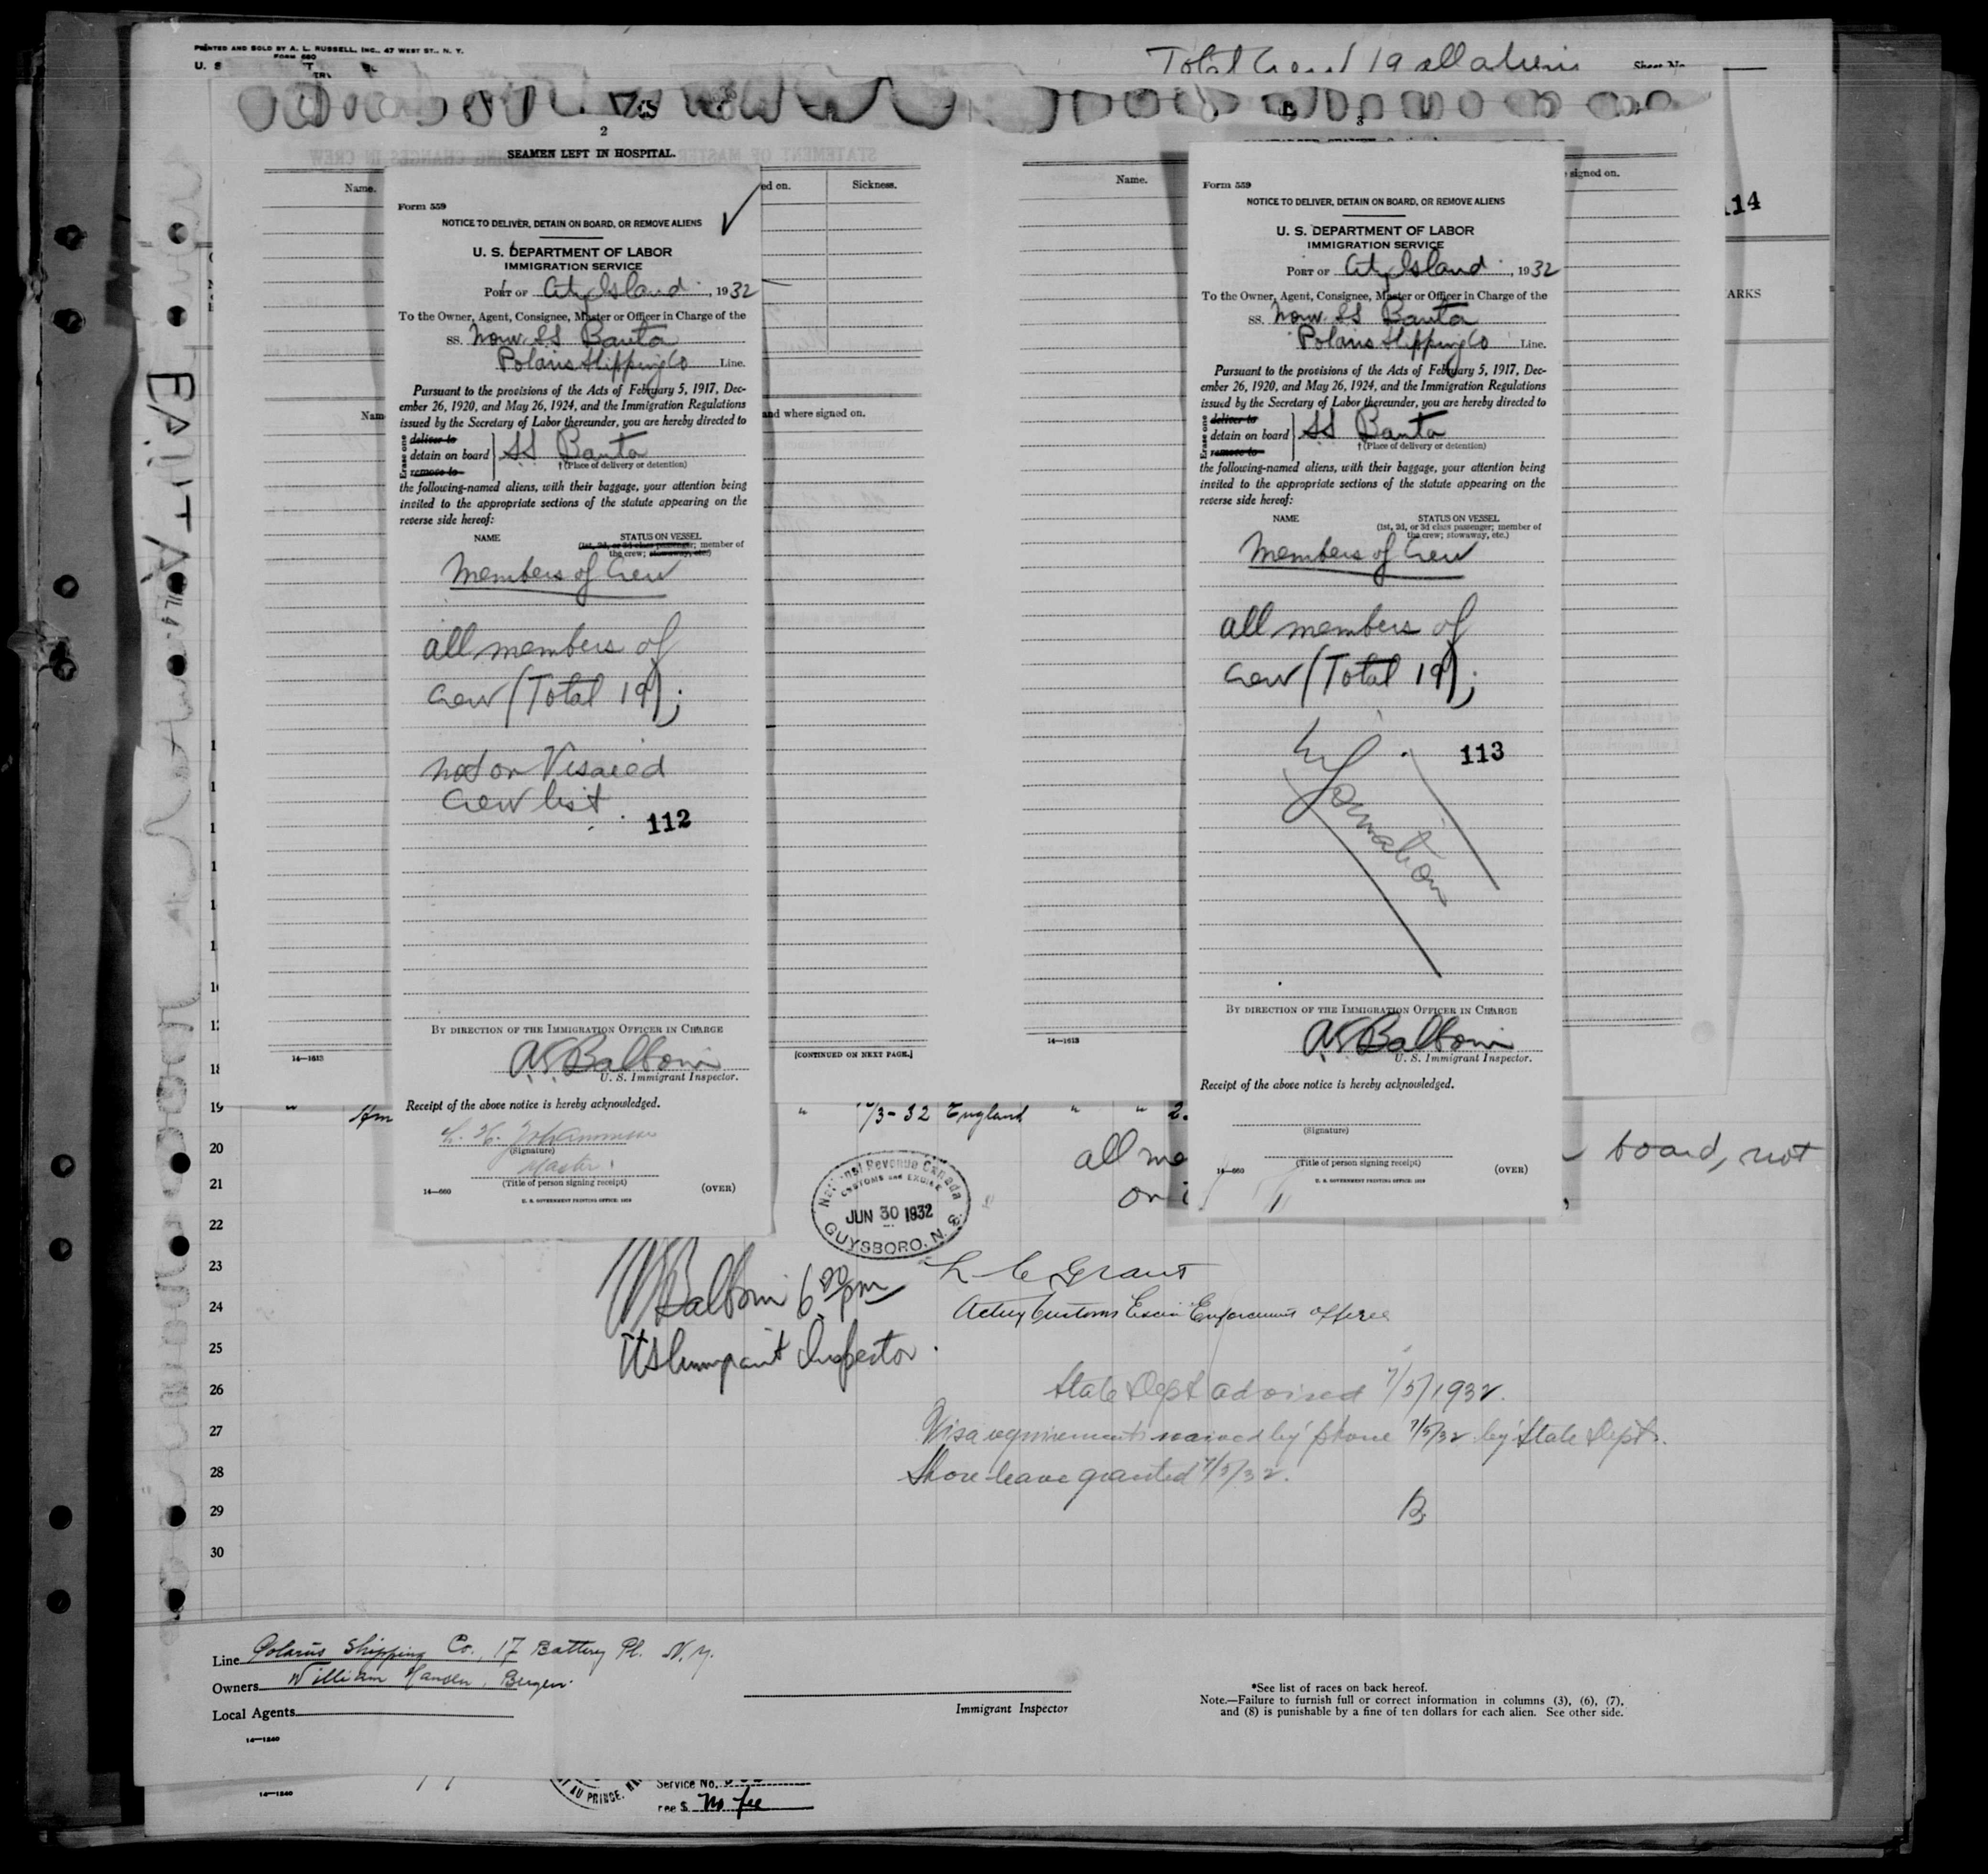 PRINTED AND SOLD BY A. L. RUSSELL, INC., 47 WEST ST., N. Y.
FORM 680
U. S
Total Crew 19 all aliens
Sheet No.
2
SEAMEN LEFT IN HOSPITAL.
Name.
ed on.
Sickness.
Nam
and where signed on.
14—1613
[CONTINUED ON NEXT PAGE.]
Form 559
NOTICE TO DELIVER, DETAIN ON BOARD, OR REMOVE ALIENS
U. S. DEPARTMENT OF LABOR
IMMIGRATION SERVICE
PORT OF City Island, 1932
To the Owner, Agent, Consignee, Master or Officer in Charge of the
SS. Norw. SS Banta
Polaris Shipping Co Line.
Pursuant to the provisions of the Acts of February 5, 1917, Dec-
ember 26, 1920, and May 26, 1924, and the Immigration Regulations
issued by the Secretary of Labor thereunder, you are hereby directed to
Erase one
deliver to
detain on board
remove to
SS Banta
†(Place of delivery or detention)
the following-named aliens, with their baggage, your attention being
invited to the appropriate sections of the statute appearing on the
reverse side hereof:
NAME
STATUS ON VESSEL
(1st, 2d, or 3d class passenger; member of
the crew; stowaway, etc.)
Members of Crew
all members of
crew (Total 19);
not on Visaed
crew list.
112
BY DIRECTION OF THE IMMIGRATION OFFICER IN CHARGE
Baldwin
U. S. Immigrant Inspector.
Receipt of the above notice is hereby acknowledged.
(Signature)
Master
(Title of person signing receipt)
14—660
(OVER)
U. S. GOVERNMENT PRINTING OFFICE: 1929
3
Name.
signed on.
14—1613
Form 559
NOTICE TO DELIVER, DETAIN ON BOARD, OR REMOVE ALIENS
U. S. DEPARTMENT OF LABOR
IMMIGRATION SERVICE
PORT OF City Island, 1932
To the Owner, Agent, Consignee, Master or Officer in Charge of the
SS. Norw. SS Banta
Polaris Shipping Co Line.
Pursuant to the provisions of the Acts of February 5, 1917, Dec-
ember 26, 1920, and May 26, 1924, and the Immigration Regulations
issued by the Secretary of Labor thereunder, you are hereby directed to
Erase one
deliver to
detain on board
remove to
SS Banta
†(Place of delivery or detention)
the following-named aliens, with their baggage, your attention being
invited to the appropriate sections of the statute appearing on the
reverse side hereof:
NAME
STATUS ON VESSEL
(1st, 2d, or 3d class passenger; member of
the crew; stowaway, etc.)
Members of Crew
all members of
crew (Total 19);
113
BY DIRECTION OF THE IMMIGRATION OFFICER IN CHARGE
Baldwin
U. S. Immigrant Inspector.
Receipt of the above notice is hereby acknowledged.
(Signature)
(Title of person signing receipt)
14—660
(OVER)
U. S. GOVERNMENT PRINTING OFFICE: 1929
114
ARKS
19 " " /3-32 England " "
20
all me
board, not
21
22
23
24
25
26
27
28
29
30
National Revenue Canada
CUSTOMS and EXCISE
JUN 30 1932
GUYSBORO, N. S.
Baldwin 6 00 pm
US Immigrant Inspector.
Grant
Acting Customs Excise Enforcement Officer
State Dept advised 7/5/1932.
Visa requirements waived by phone 7/5/32 by State Dept.
Shore leave granted 7/5/32.
B.
Line Polaris Shipping Co., 17 Battery Pl. N.Y.
Owners William Hansen, Bergen.
Local Agents
14—1240
Immigrant Inspector
*See list of races on back hereof.
Note.—Failure to furnish full or correct information in columns (3), (6), (7),
and (8) is punishable by a fine of ten dollars for each alien. See other side.
14—1240
AU PRINCE,
Service No.
Fee $ No fee